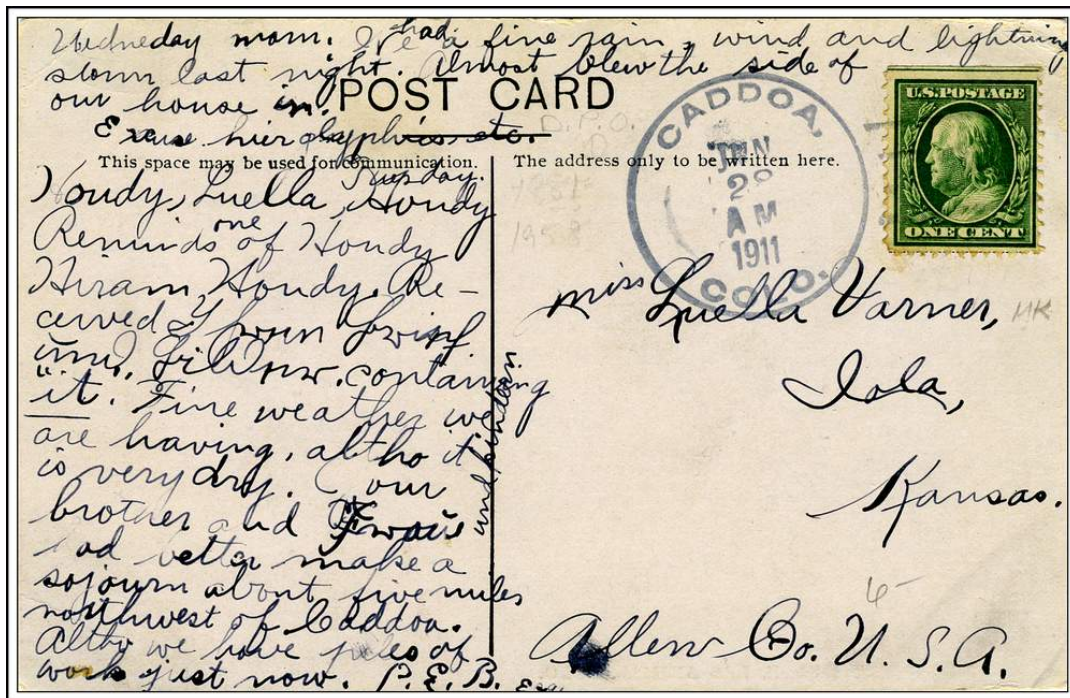 Wedneday morn. We had a fine rain, wind and lightning
storm last night. Almost blew the side of
our house in.
POST CARD
Excuse hieroglyphics etc.
This space may be used for communication.
Tuesday.
Howdy, Luella, Howdy
Reminds one of Howdy
Hiram, Howdy. Re-
ceived
containing
"it. Fine weather we
are having, altho it
is very dry. Your
brother and
had better make a
sojourn about five miles
northwest of Caddoa.
Altho we have piles of
work just now. P.E.B.
The address only to be written here.
D.P.O.
CADDOA,
JUN
28
AM
1911
COLO.
U.S. POSTAGE
ONE CENT
Miss Luella Varner,
Iola,
Kansas.
Allen Co. U.S.A.